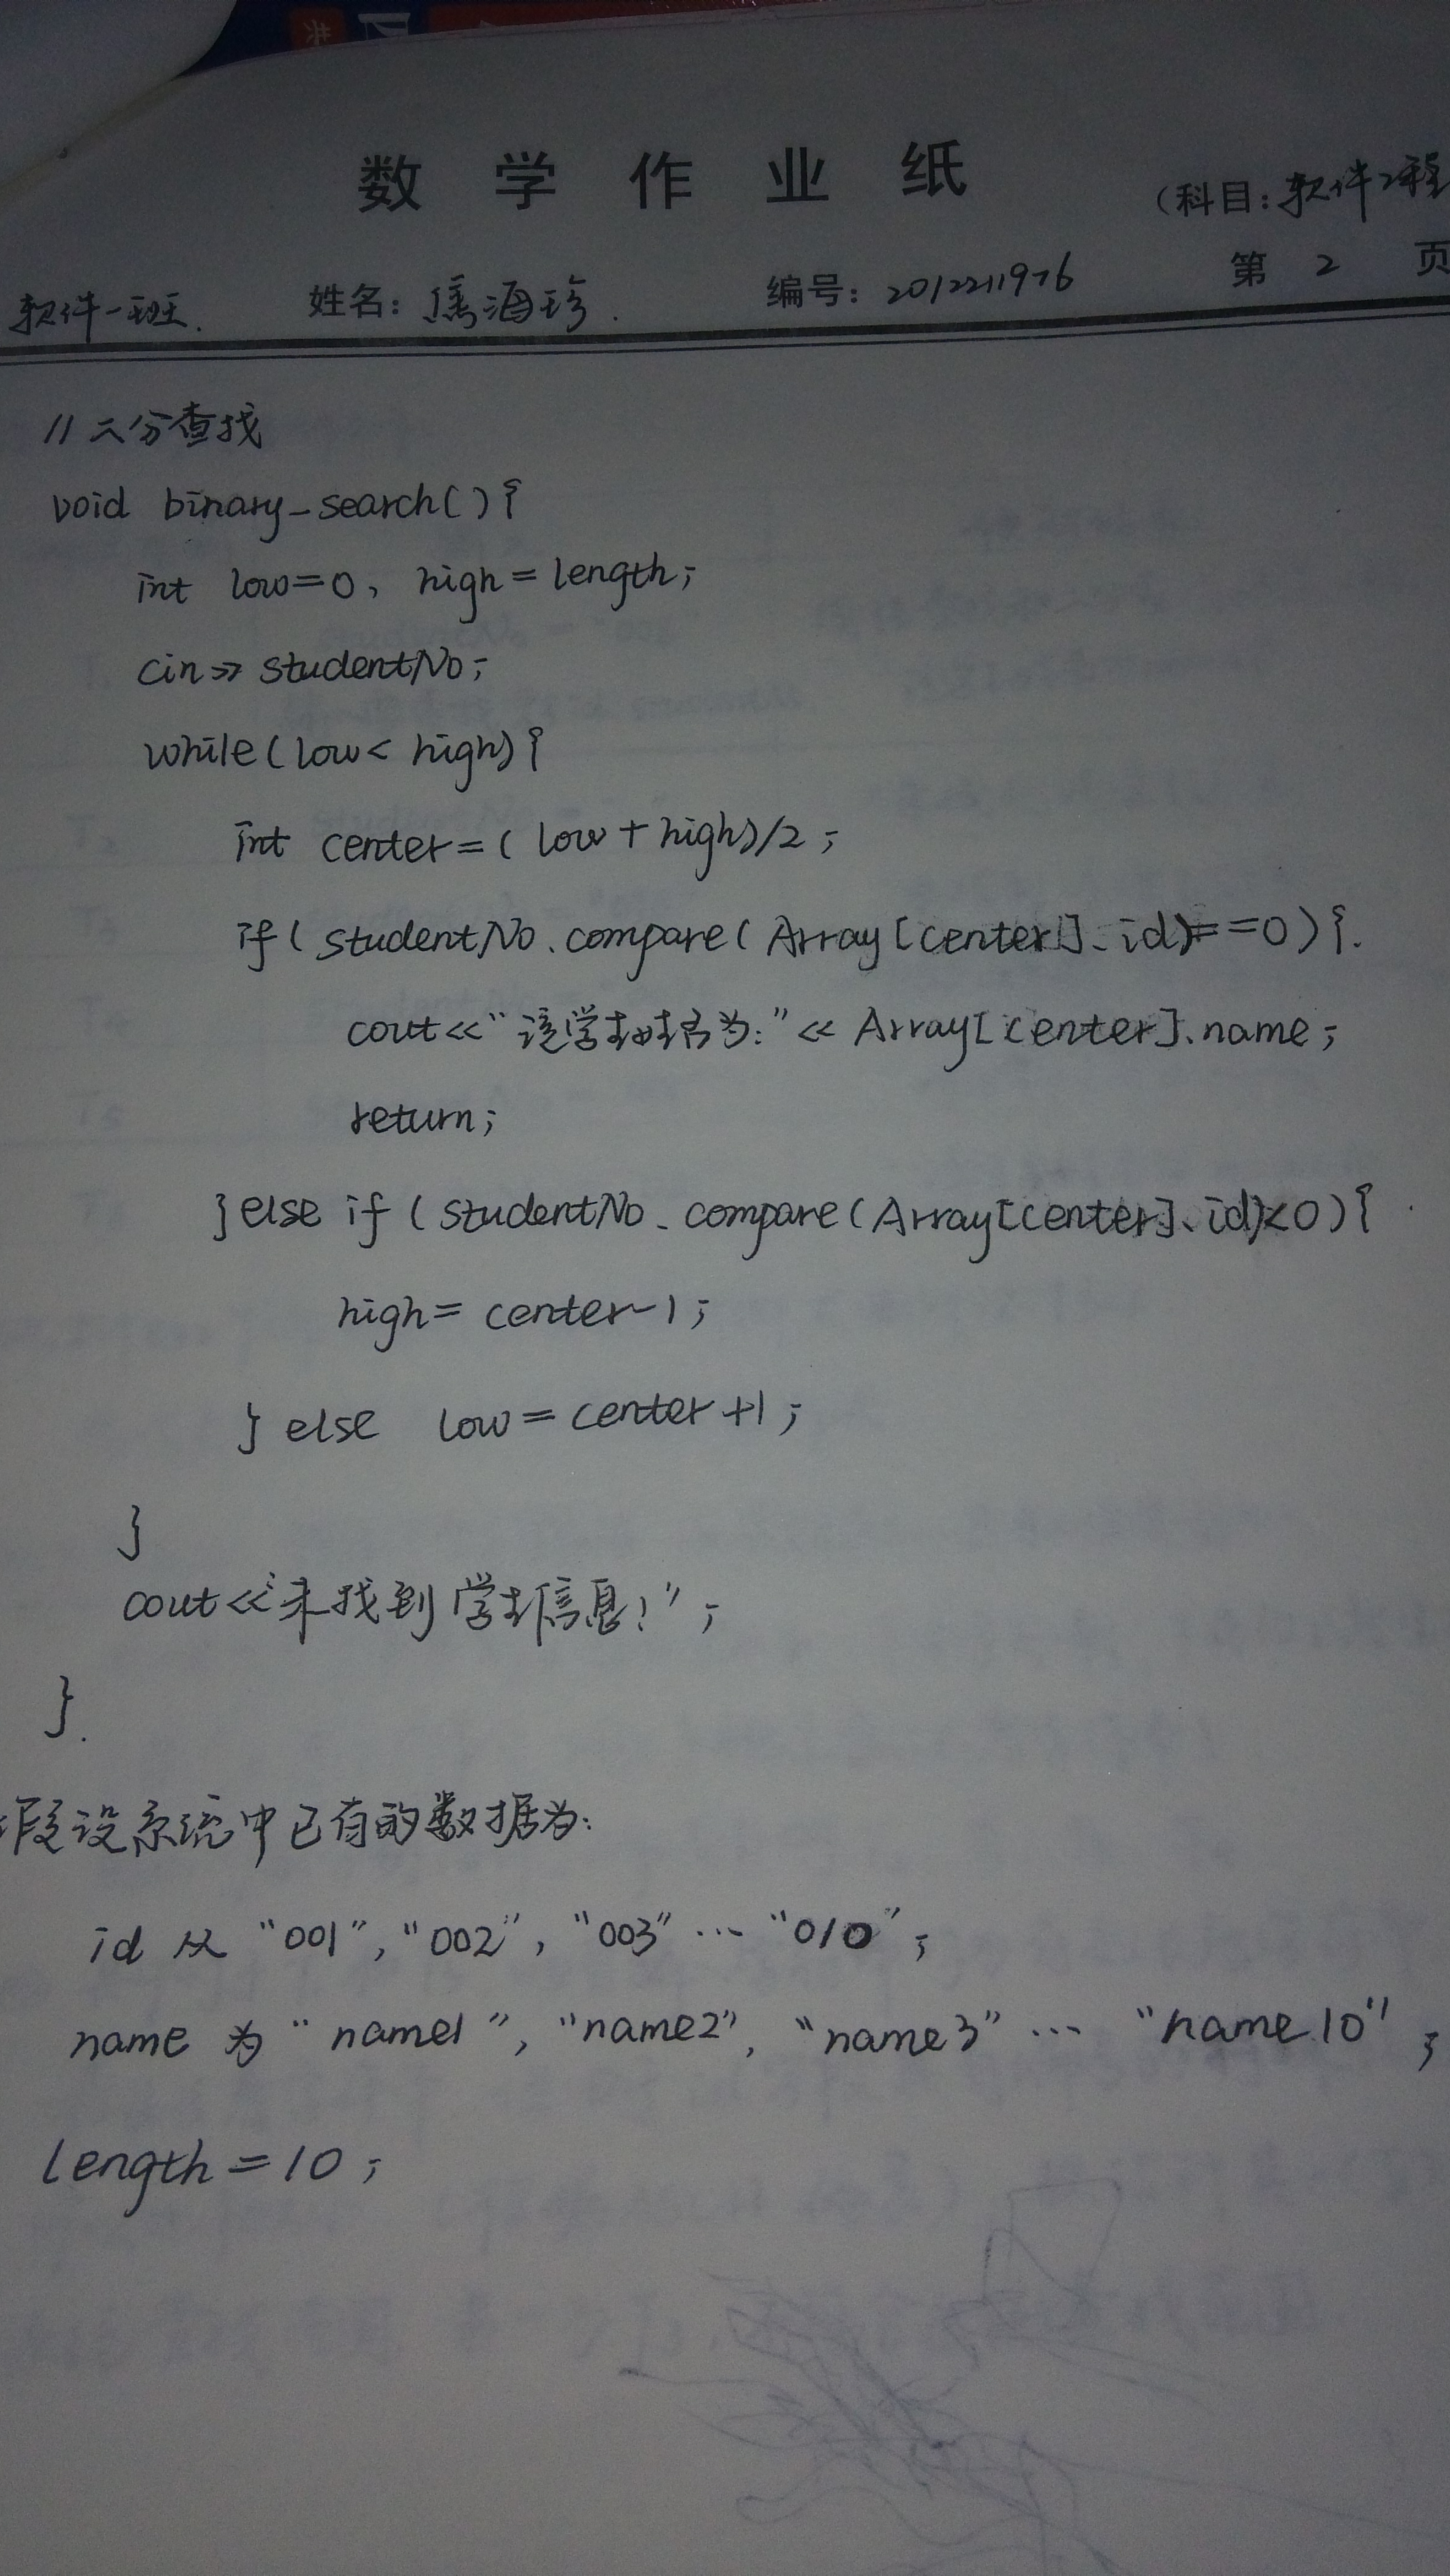 共
数学作业纸
(科目:软件工程
软件一班. 姓名: 海珍. 编号: 2012211976 第 2 页
//二分查找
void binary_search(){
int low=0, high=length;
cin>>studentNo;
while(low<high){
int center=(low+high)/2;
if(studentNo.compare(Array[center].id)==0){.
cout<<"该学生姓名为:"<<Array[center].name;
return;
}else if(studentNo.compare(Array[center].id)<0){
high=center-1;
}else low=center+1;
}
cout<<"未找到学生信息!";
}.
假设系统中已有的数据为:
id 从 "001", "002", "003" ... "010";
name 为 "name1", "name2", "name3" ... "name10";
length=10;